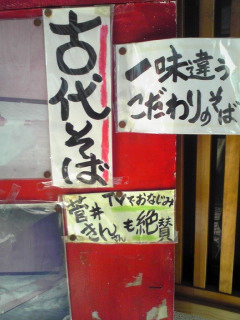 古代そば
一味違う
こだわりのそば
TVでおなじみ
菅井
きんさんも絶賛